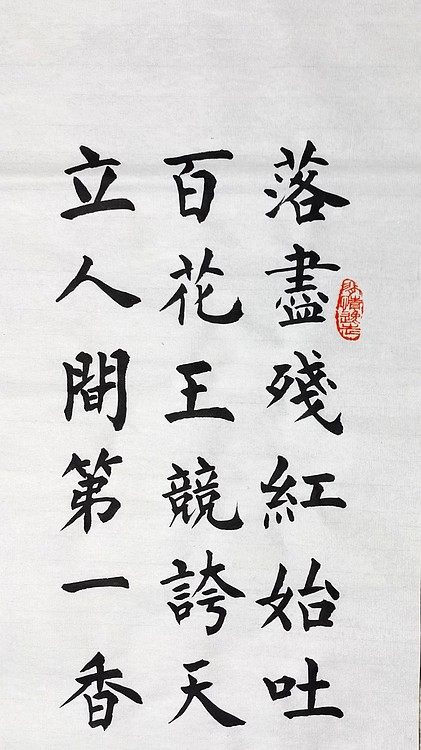 落盡殘紅始吐
百花王競誇天
立人間第一香